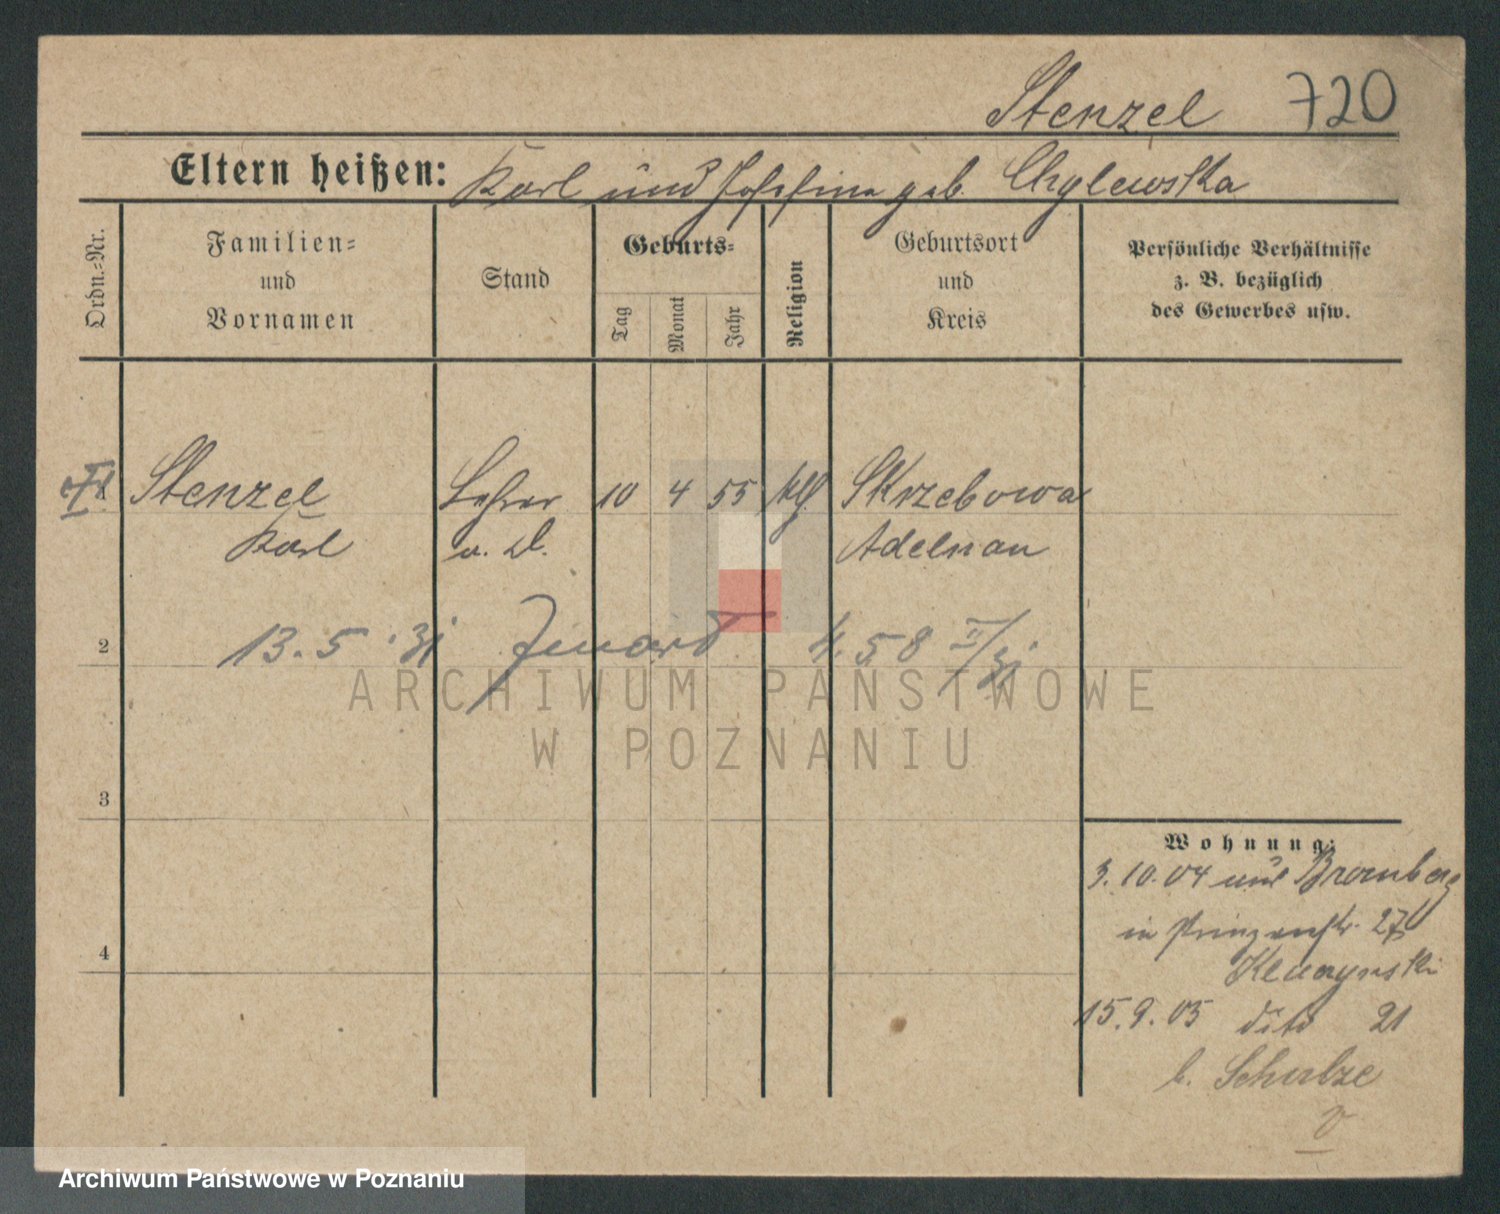 Stenzel 720
Eltern heißen: Karl und Josefine geb. Chylewska
Ordn.-Nr.
Familien-
und
Vornamen
Stand
Geburts-
Tag
Monat
Jahr
Religion
Geburtsort
und
Kreis
Persönliche Verhältnisse
z. B. bezüglich
des Gewerbes usw.
Stenzel Lehrer 10 4 55 Skrzebowa
Karl a. D. Adelnau
2
13. 5. 31 4. 58
ARCHIWUM PAŃSTWOWE
W POZNANIU
3
Wohnung:
3. 10. 04 aus Bromberg
in Prinzenstr. 27
4
15. 9. 05 dito 21
b. Schulze
Archiwum Państwowe w Poznaniu